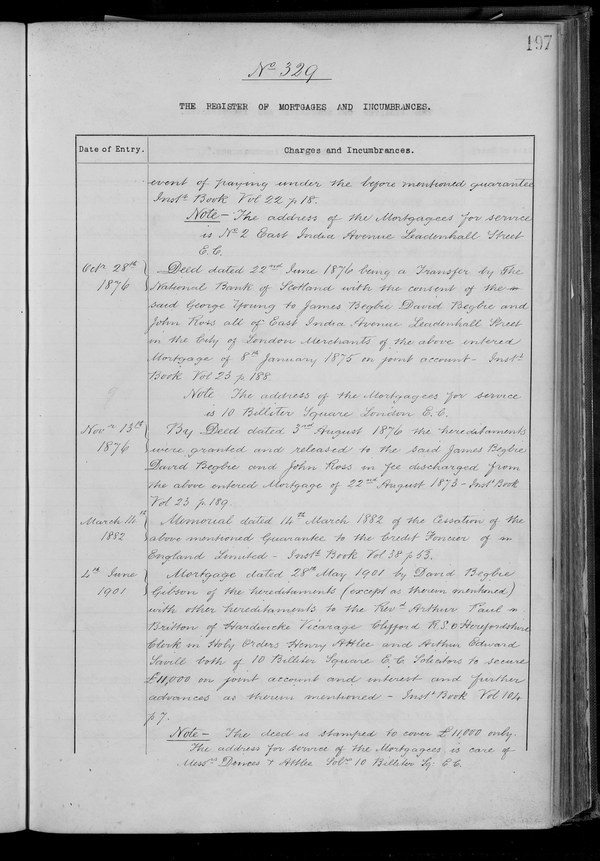 197
No 329
THE REGISTER OF MORTGAGES AND INCUMBRANCES.
Date of Entry. Charges and Incumbrances.
event of paying under the before mentioned guarantee
Instt Book Vol 22 p 18.
Note - The address of the Mortgagees for service
is No 2 East India Avenue Leadenhall Street
E.C.
Octr 28th 1876
Deed dated 22nd June 1876 being a Transfer by The
National Bank of Scotland with the consent of the
said George Young to James Begbie David Begbie and
John Ross all of East India Avenue Leadenhall Street
in the City of London Merchants of the above entered
Mortgage of 8th January 1875 on joint account - Instt
Book Vol 23 p 188.
Note The address of the Mortgagees for service
is 10 Billiter Square London E.C.
Novr 13th 1876
By Deed dated 3rd August 1876 the hereditaments
were granted and released to the said James Begbie
David Begbie and John Ross in fee discharged from
the above entered Mortgage of 22nd August 1873 - Instt Book
Vol 23 p 189.
March 14th 1882
Memorial dated 14th March 1882 of the Cessation of the
above mentioned Guarantee to the Credit Foncier of
England Limited - Instt Book Vol 38 p 53.
4th June 1901
Mortgage dated 28th May 1901 by David Begbie
Gibson of the hereditaments (except as therein mentioned)
with other hereditaments to the Revd Arthur Paul
Britton of Hardwicke Vicarage Clifford R.S.O Herefordshire
Clerk in Holy Orders Henry Attlee and Arthur Edward
Savill both of 10 Billiter Square E.C. Solicitors to secure
£11,000 on joint account and interest and further
advances as therein mentioned - Instt Book Vol 104
p 7.
Note - The deed is stamped to cover £11,000 only.
The address for service of the Mortgagees is care of
Messrs Druces & Attlee Solrs 10 Billiter Sq. E.C.